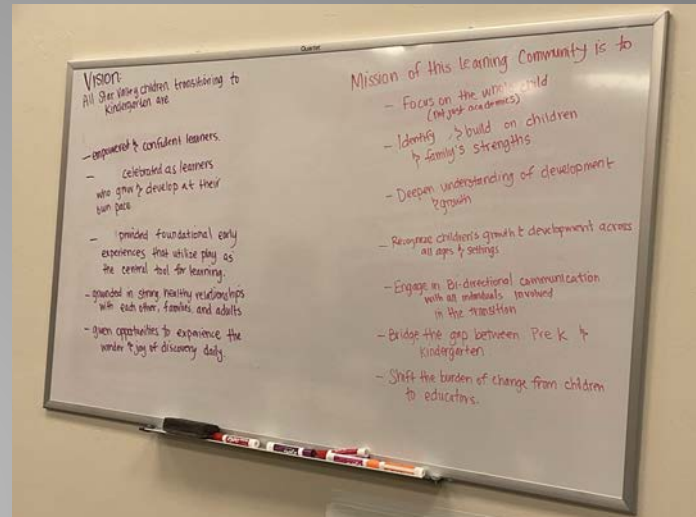 Quartet
Vision:
All Star Valley children transitioning to
Kindergarten are
- empowered & confident learners.
- celebrated as learners
who grow & develop at their
own pace
- provided foundational early
experiences that utilize play as
the central tool for learning.
- grounded in strong, healthy relationships
with each other, families, and adults
- given opportunities to experience the
wonder & joy of discovery daily.
Mission of this learning Community is to
- Focus on the whole child
(not just academics)
- Identify & build on children
& family's strengths
- Deepen understanding of development
& growth
- Recognize children's growth & development across
all ages & settings
- Engage in Bi-directional communication
with all individuals involved
in the transition
- Bridge the gap between Pre K &
Kindergarten
- Shift the burden of change from children
to educators.